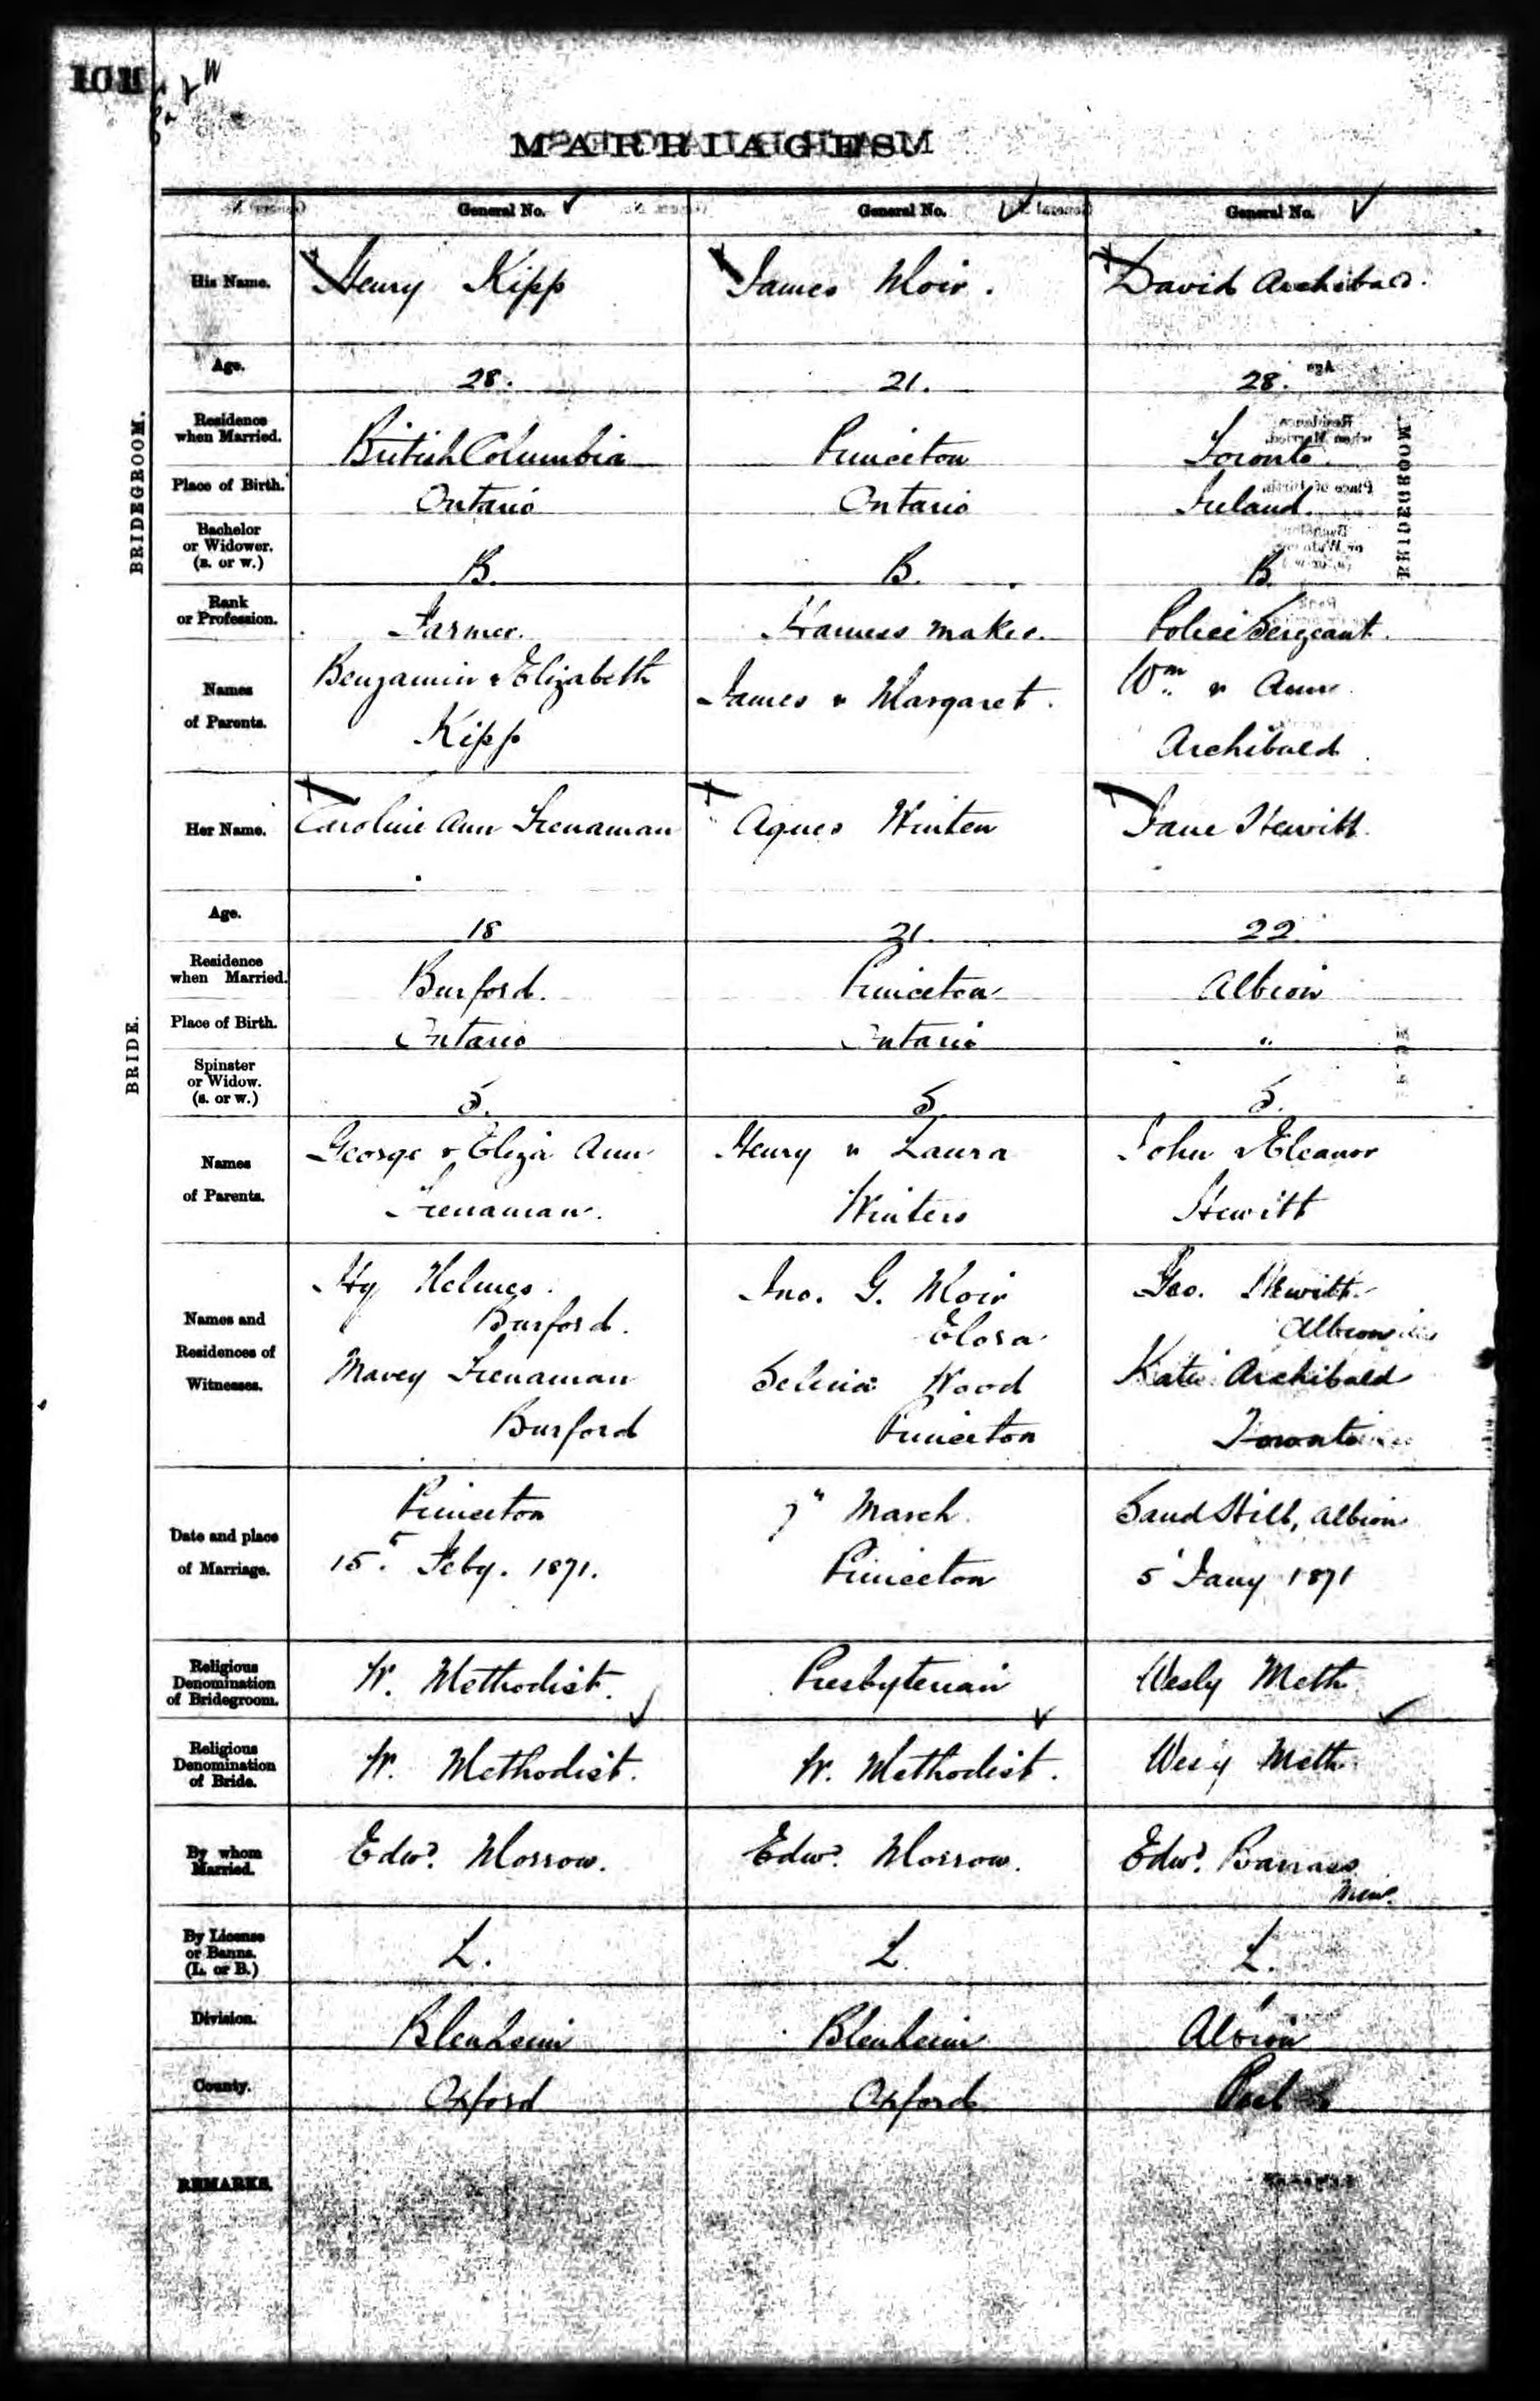 101
MARRIAGES
General No. General No. General No.
His Name. Henry Kipp James Moir. David Archibald.
Age. 28. 21. 28.
Residence when Married. British Columbia Princeton Toronto.
Place of Birth. Ontario Ontario Ireland.
Bachelor or Widower. (B. or W.) B. B. B.
Rank or Profession. Farmer. Harness maker. Police Sergeant.
Names of Parents. Benjamin & Elizabeth Kipp James & Margaret. Wm & Ann Archibald
Her Name. Caroline Ann Trenaman Agnes Winter Jane Hewitt.
Age. 18 21. 22.
Residence when Married. Burford. Princeton Albion
Place of Birth. Ontario Ontario "
Spinster or Widow. (S. or W.) S. S. S.
Names of Parents. George & Eliza Ann Trenaman. Henry & Laura Winters John & Eleanor Hewitt
Names and Residences of Witnesses. Hy Helmes. Burford. Trenaman Burford Jno. G. Moir Elora Selina Wood Princeton Geo. Hewitt. Albion Kate Archibald Toronto
Date and place of Marriage. Princeton 15. Feby. 1871. 7" March. Princeton Sand Hill, Albion 5 Jany 1871
Religious Denomination of Bridegroom. W. Methodist. Presbyterian Wesly Meth.
Religious Denomination of Bride. W. Methodist. W. Methodist. Wesy Meth.
By whom Married. Edwd. Morrow. Edwd. Morrow. Edwd. Barrass
By License or Banns. (L. or B.) L. L. L.
Division. Blenheim Blenheim Albion
County. Oxford Oxford Peel
REMARKS.
BRIDEGROOM.
BRIDE.